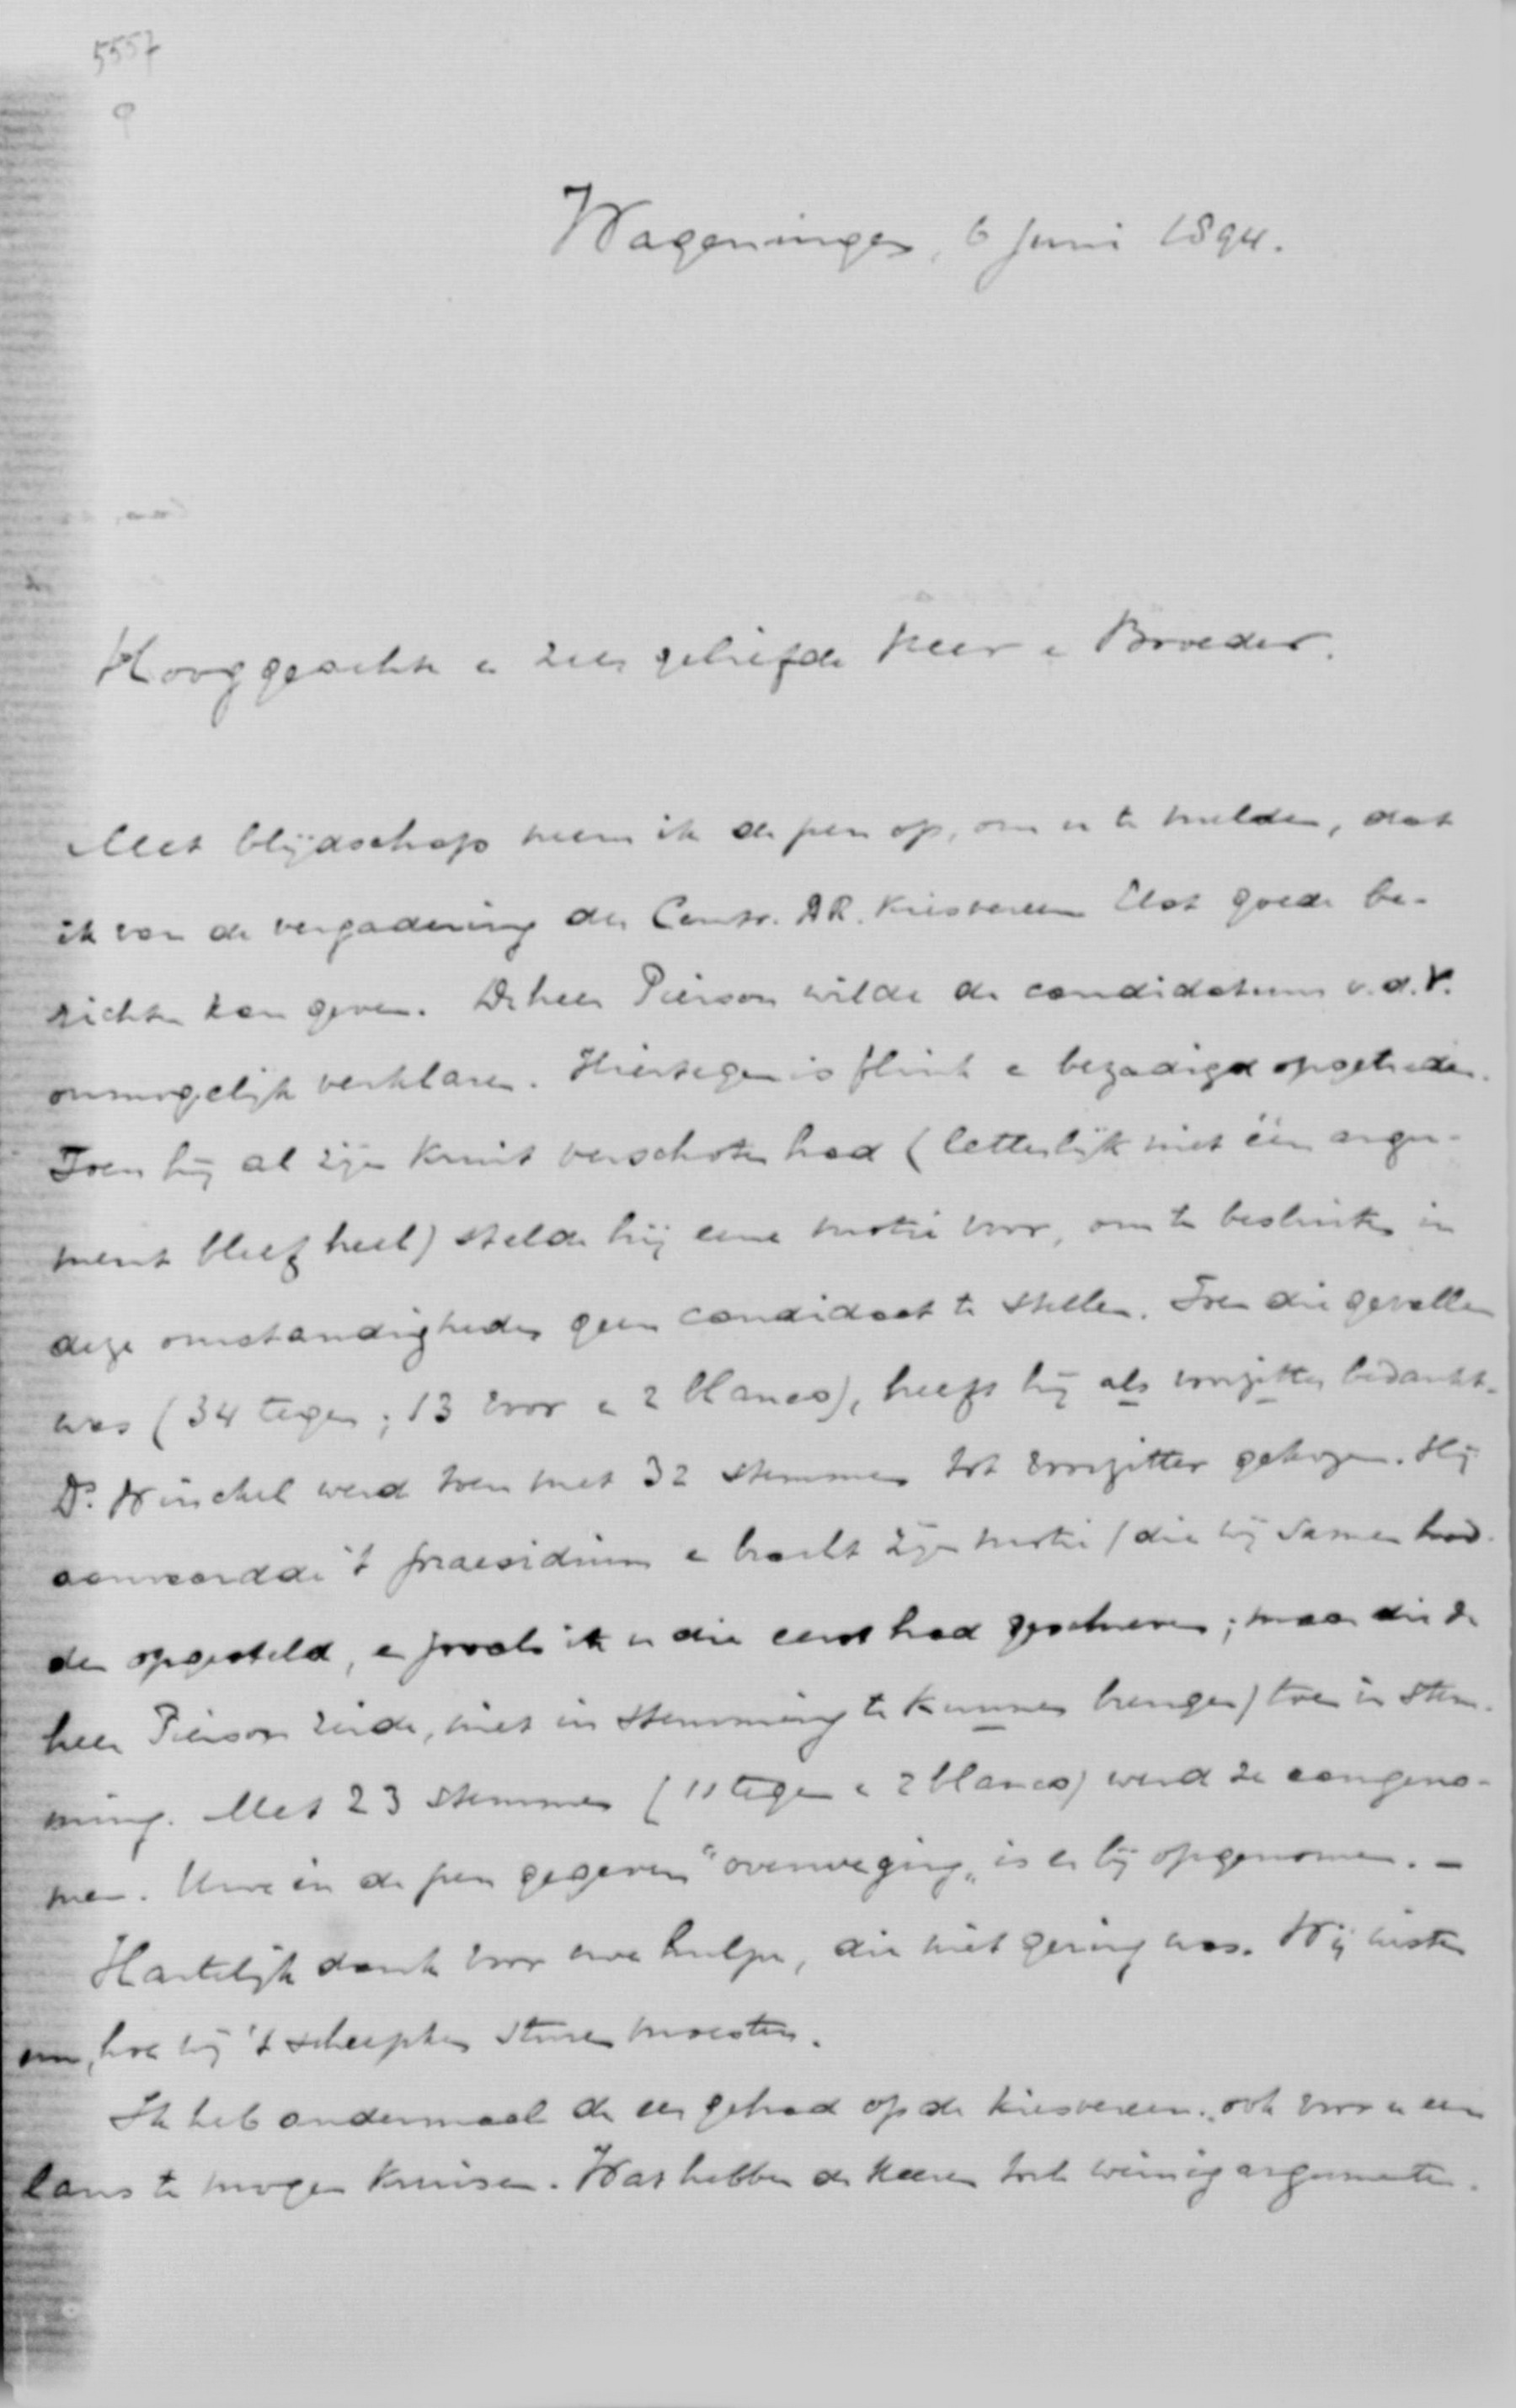 5557
Wageningen, 6 Juni 1894.
Hooggeachte en zeer geliefde Heer en Broeder.
Met blijdschap neem ik de pen op, om u te melden, dat
ik van de vergadering der Centr. AR. Kiesvereen Elst goede be-
richten kan geven. De heer Pierson wilde de candidatuur v. d. V.
onmogelijk verklaren. Hiertegen is flink en bezadigd opgetreden.
Toen hij al zijn kruit verschoten had (letterlijk niet één argu-
ment bleef heel) stelde hij eene motie voor, om te besluiten in
deze omstandigheden geen candidaat te stellen. Toen die gevallen
was (34 tegen; 13 voor en 2 blanco), heeft hij als voorzitter bedankt.
Ds. Winckel werd toen met 32 stemmen tot voorzitter gekozen. Hij
aanvaardde 't praesidium en bracht zijn motie (die wij samen had-
den opgesteld, en zooals ik u die eerst had geschreven; maar die de
heer Pierson zeide, niet in stemming te kunnen brengen) toen in stem-
ming. Met 23 stemmen (11 tegen en 2 blanco) werd ze aangeno-
men. Uwe in de pen gegeven "overweging" is er bij opgenomen. –
Hartelijk dank voor uwe hulpe, die niet gering was. Wij wisten
nu, hoe wij 't scheepken sturen moesten.
Ik heb andermaal de eer gehad op de kiesvereen. ook voor u een
lans te mogen kruisen. Wat hebben de heeren toch weinig argumenten.